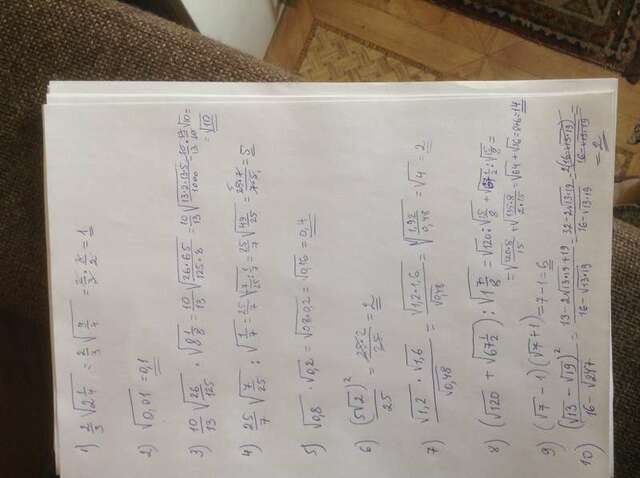 1) 2/3 √(2 1/4) = 2/3 √(9/4) = 2/3 · 3/2 = 1
2) √0,01 = 0,1
3) 10/13 √(26/125) · √(8 1/8) = 10/13 √(26·65/125·8) = 10/13 √(13·2·13·5/1000) = 10/13 · 13/10 √10 =
= √10
4) 25/7 √(7/25) : √(1/7) = 25/7 √(7/25 : 1/7) = 25/7 √(49/25) = 25·7/7·5 = 5
5) √0,8 · √0,2 = √0,8·0,2 = √0,16 = 0,4
6) (5√2)²/25 = 25·2/25 = 2
7) √1,2 · √1,6 / √0,48 = √1,2·1,6 / √0,48 = √(1,92/0,48) = √4 = 2
8) (√120 + √(67 1/2)) : √(1 7/8) = √120 : √(15/8) + √(67 1/2) : √(15/8) =
= √(120·8/15) + √(135·8/2·15) = √64 + √36 = 8+6 = 14
9) (√7 − 1)(√7 + 1) = 7−1 = 6
10) (√13 − √19)² / 16 − √247 = 13 − 2√13·19 + 19 / 16 − √13·19 = 32 − 2√13·19 / 16 − √13·19 = 2(16 − √13·19) / 16 − √13·19 =
= 2